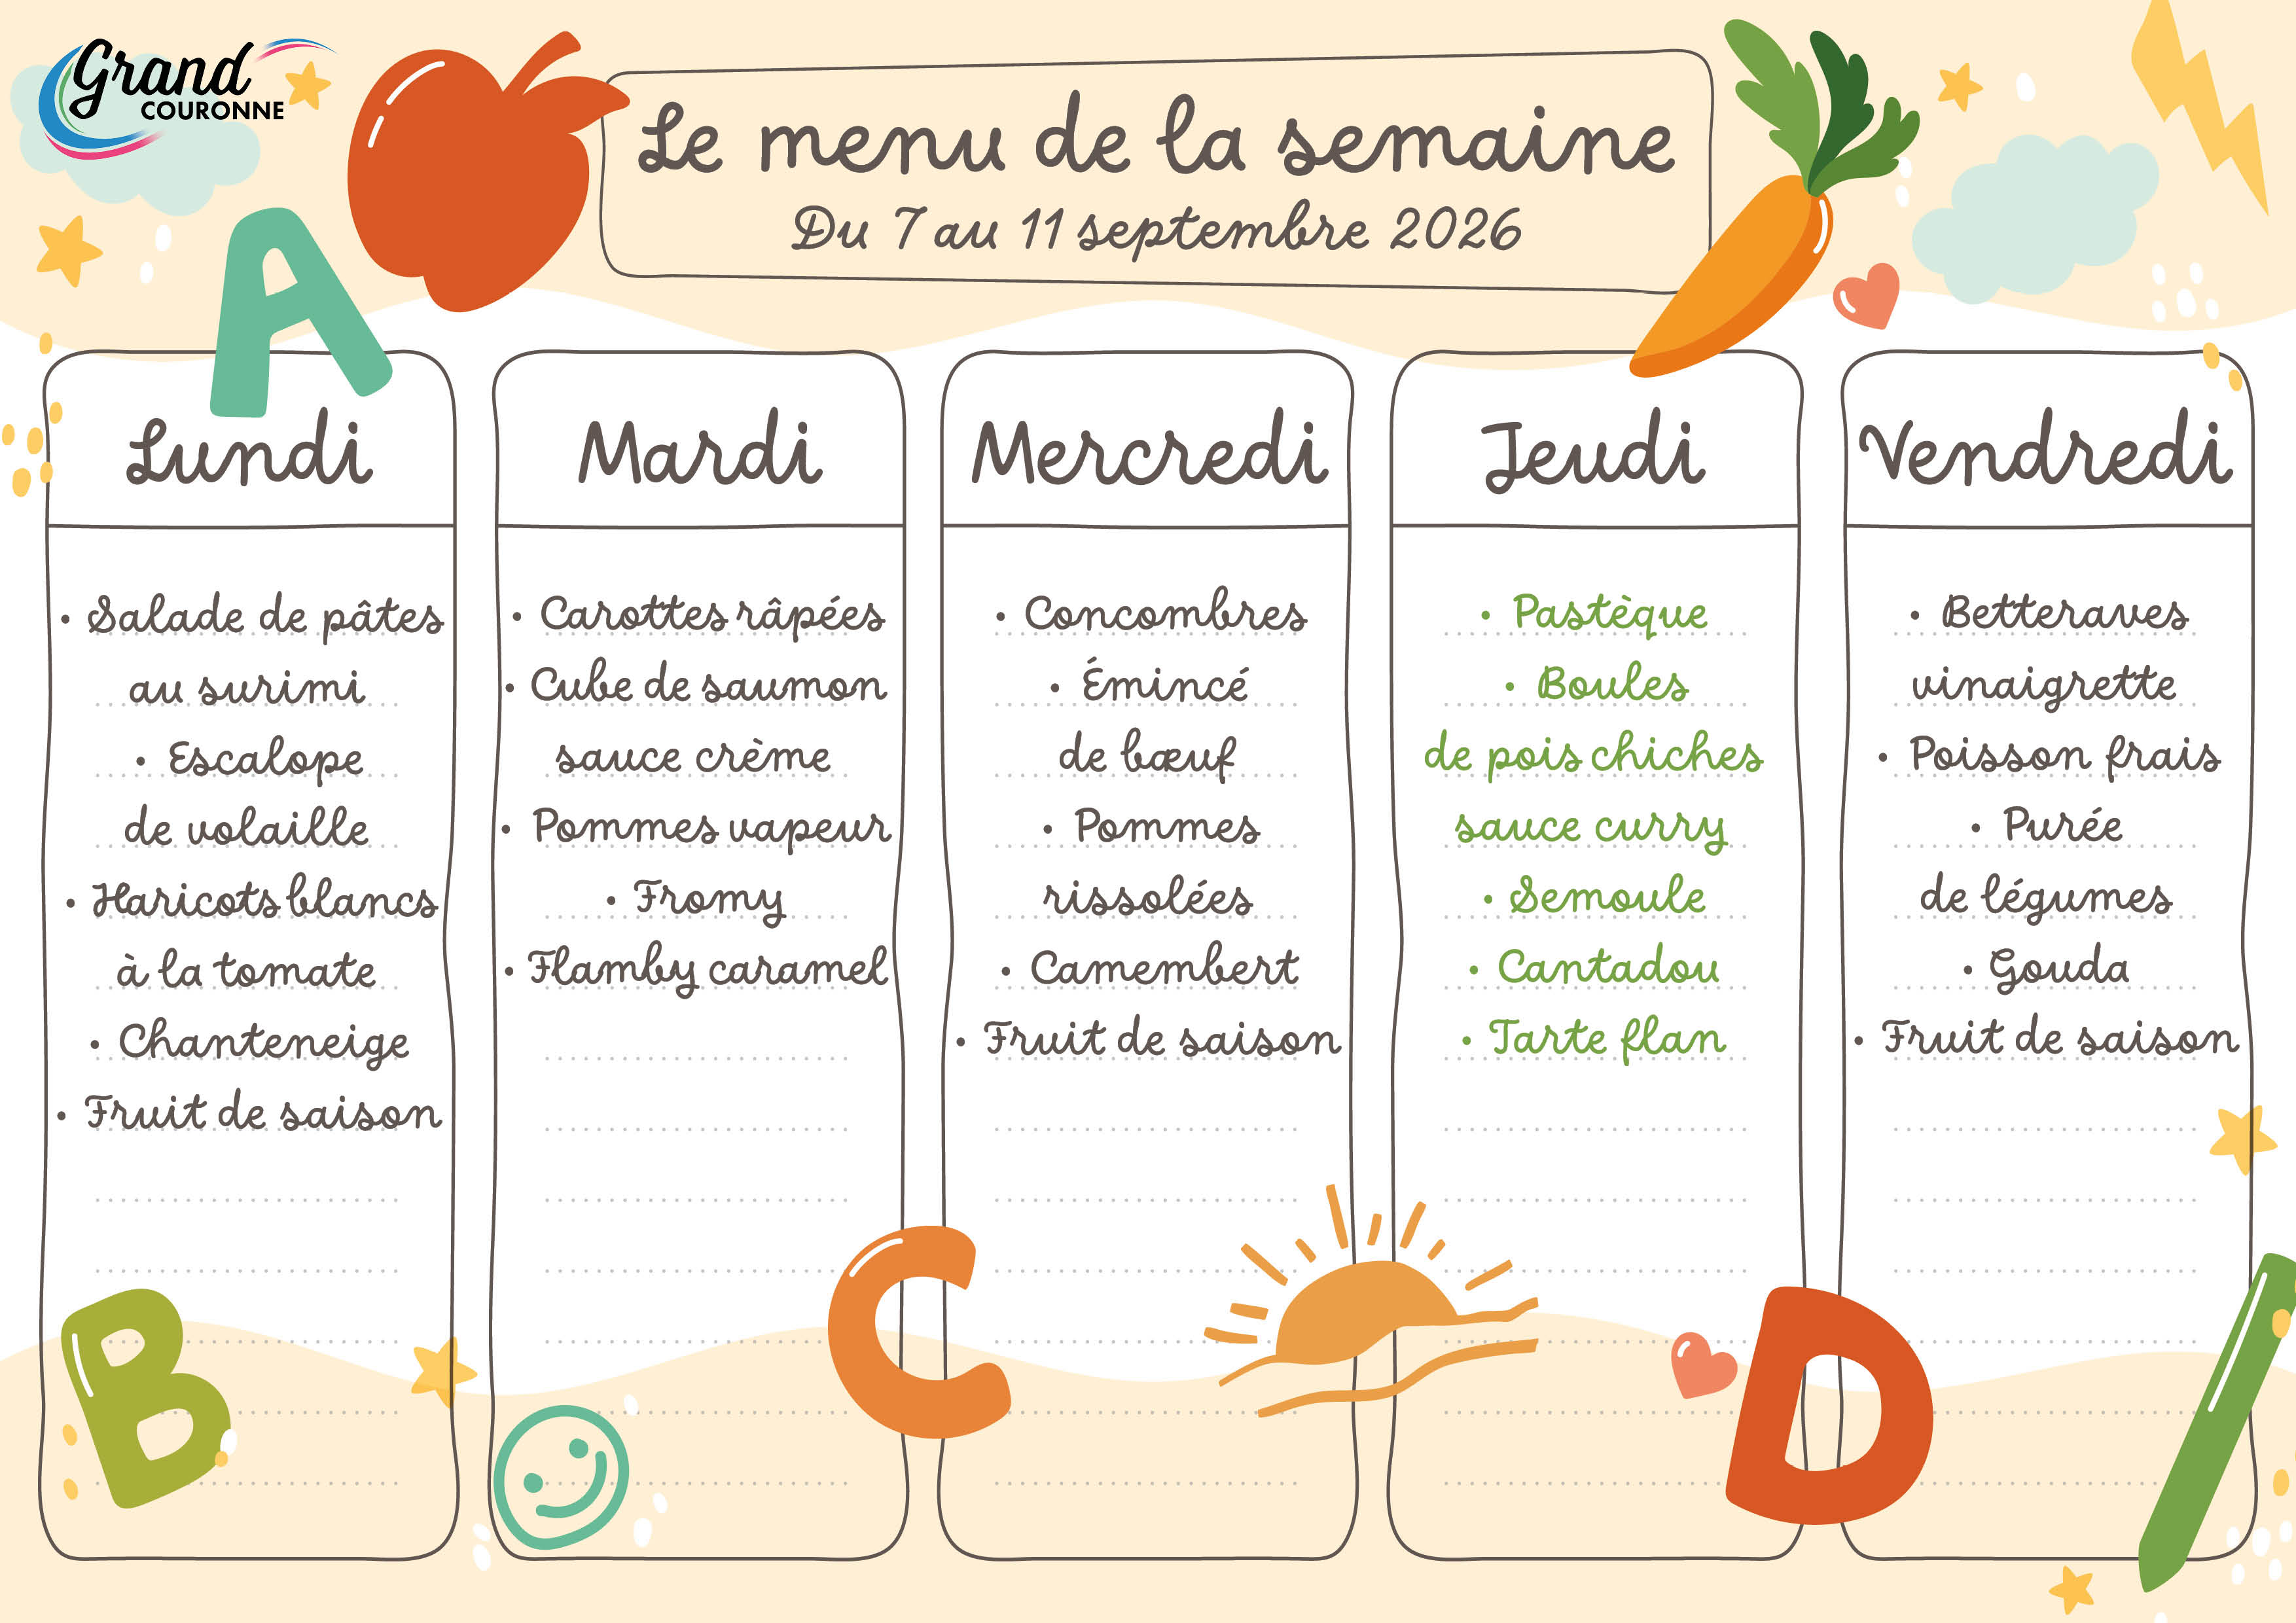 Grand
COURONNE
Le menu de la semaine
Du 7 au 11 septembre 2026
A
Lundi
• Salade de pâtes
au surimi
• Escalope
de volaille
• Haricots blancs
à la tomate
• Chanteneige
• Fruit de saison
Mardi
• Carottes râpées
• Cube de saumon
sauce crème
• Pommes vapeur
• Fromy
• Flamby caramel
Mercredi
• Concombres
• Émincé
de bœuf
• Pommes
rissolées
• Camembert
• Fruit de saison
Jeudi
• Pastèque
• Boules
de pois chiches
sauce curry
• Semoule
• Cantadou
• Tarte flan
Vendredi
• Betteraves
vinaigrette
• Poisson frais
• Purée
de légumes
• Gouda
• Fruit de saison
B
C
D